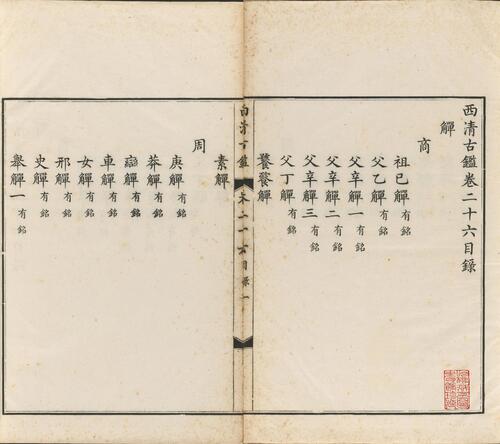 西清古鑑卷二十六目錄
觶
商
祖已觶有銘
父乙觶有銘
父辛觶一有銘
父辛觶二有銘
父辛觶三有銘
父丁觶有銘
饕餮觶
西清古鑑 卷二十六目錄 一
素觶
周
庚觶有銘
莽觶有銘
觶有銘
車觶有銘
女觶有銘
邢觶有銘
史觶有銘
舉觶一有銘